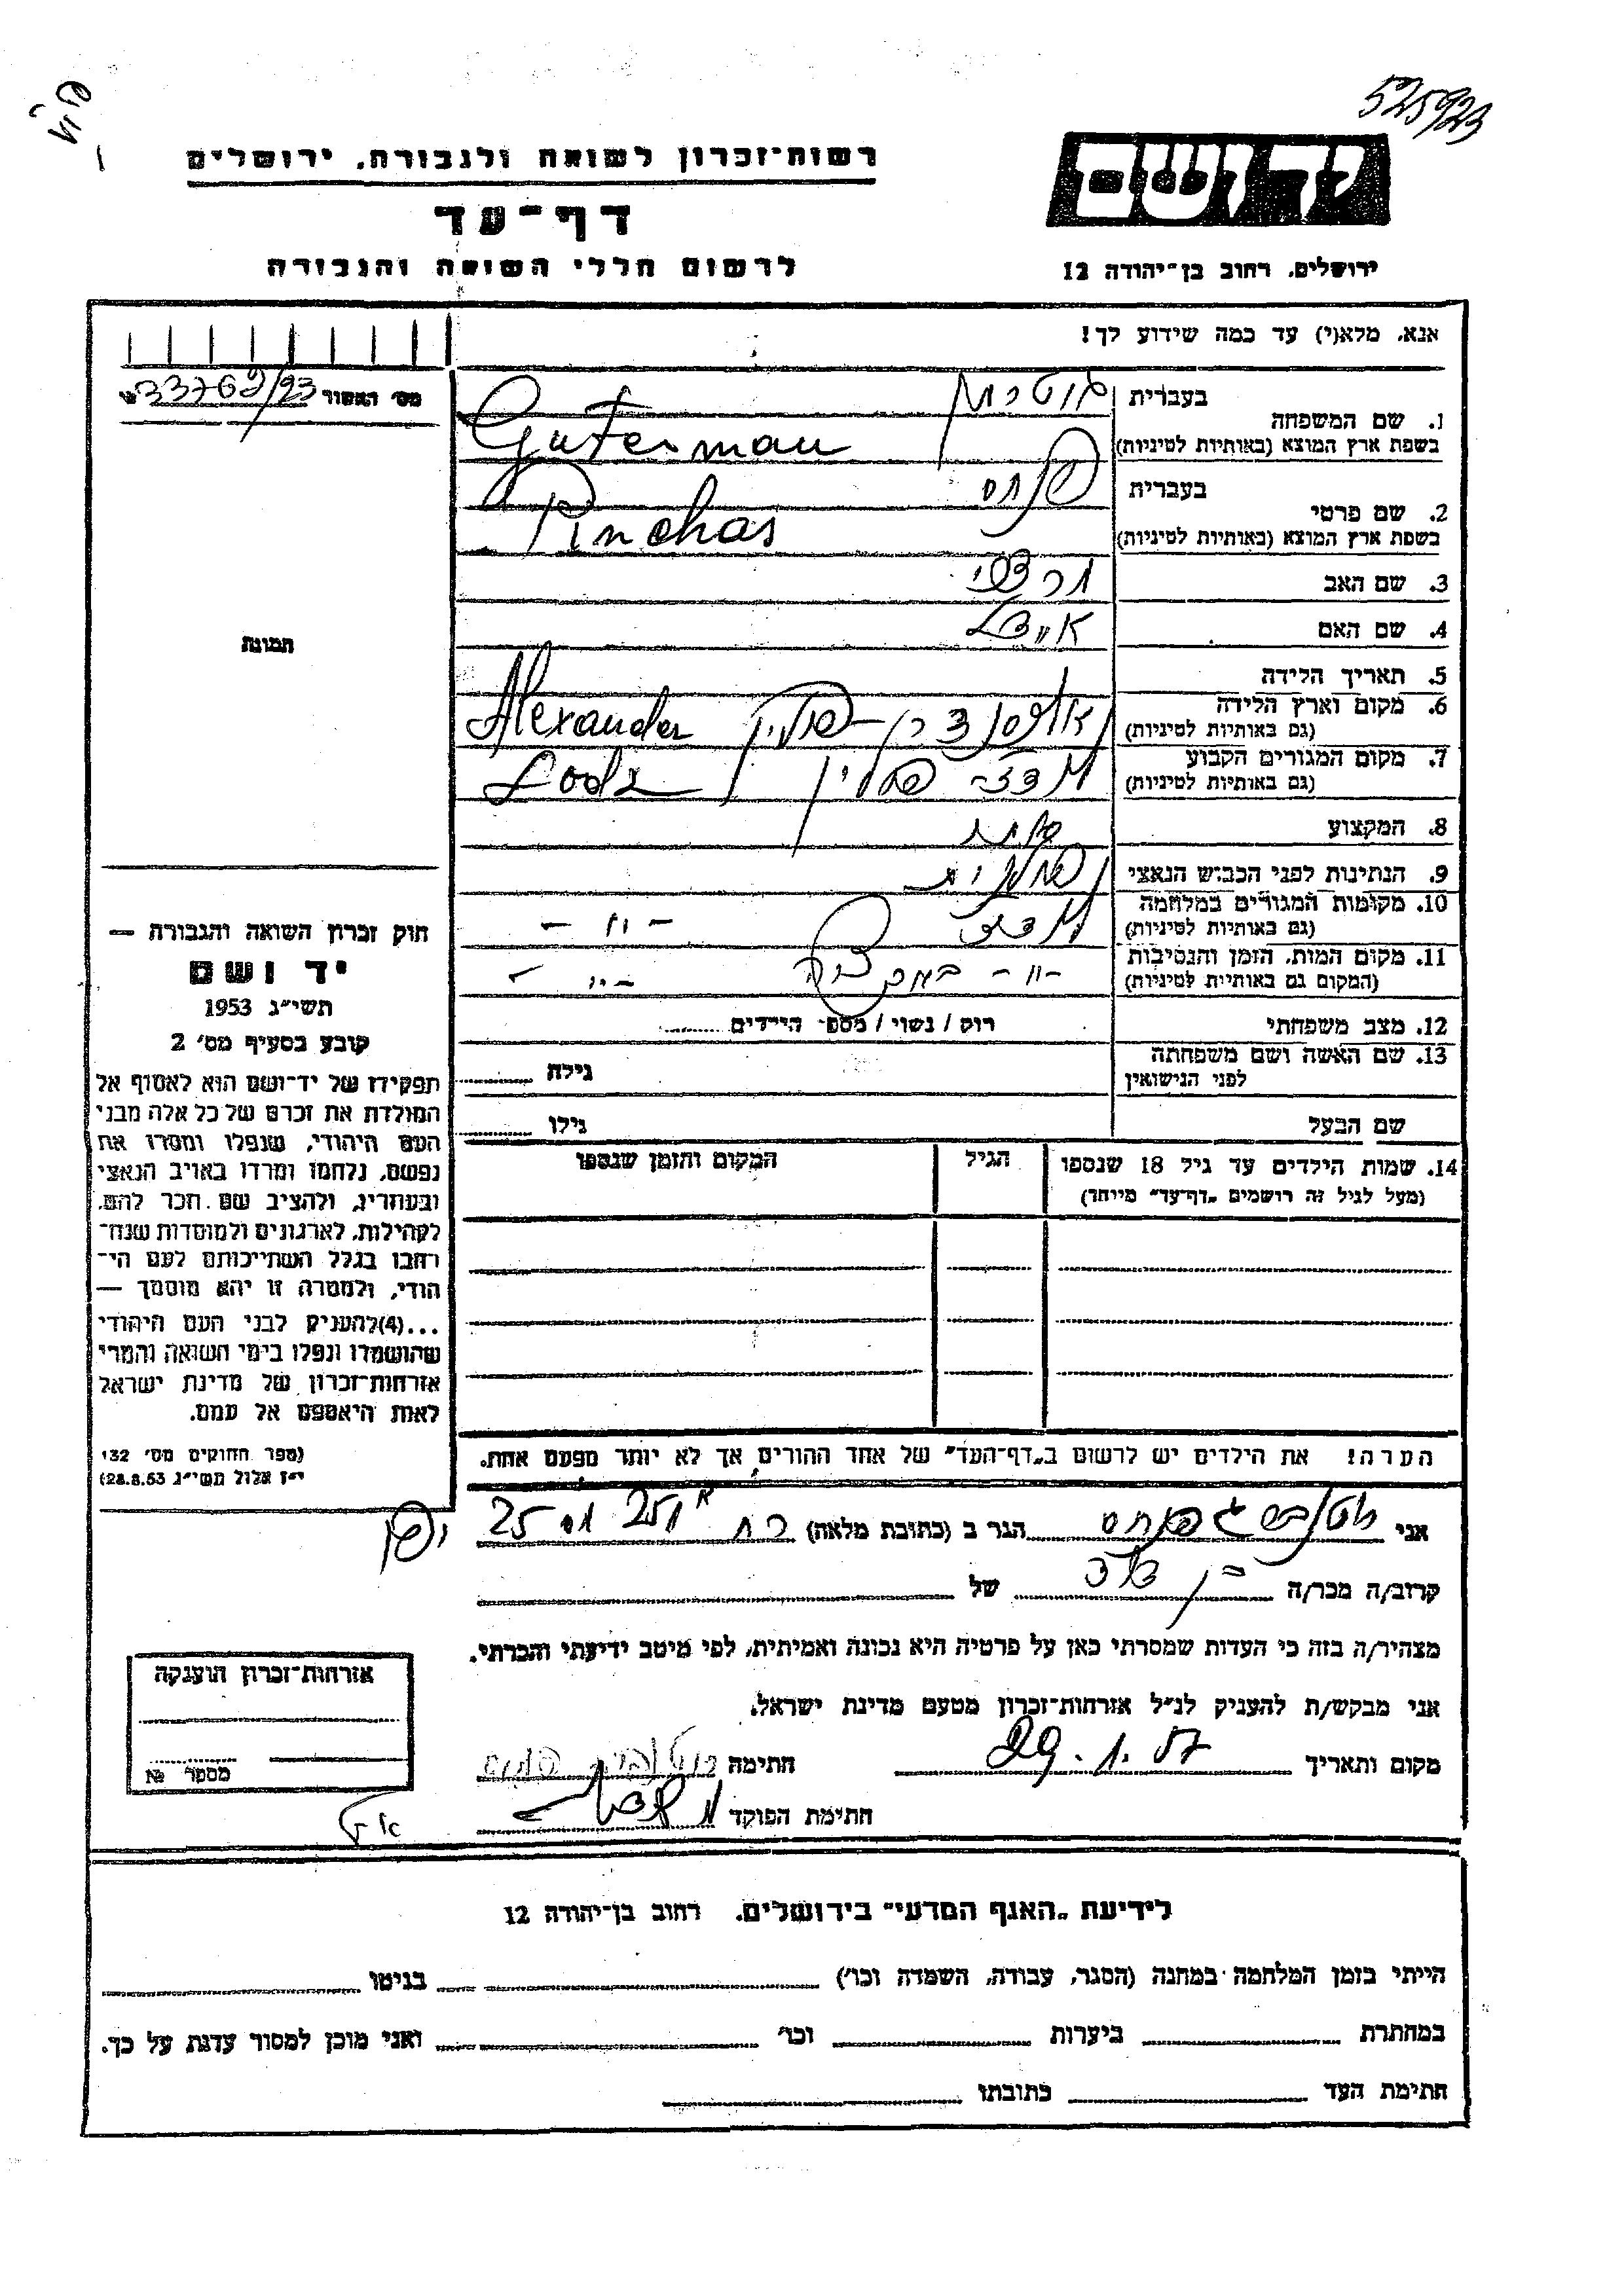 525923
רשות-זכרון לשואה ולגבורה, ירושלים
דף-עד
לרשום חללי השואה והגבורה
יד ושם
ירושלים, רחוב בן-יהודה 12
אנא, מלא(י) עד כמה שידוע לך!
מס' האסור
1. שם המשפחה
בעברית גוטרמן
בשפת ארץ המוצא (באותיות לטיניות) Guterman
2. שם פרטי
בעברית פנחס
בשפת ארץ המוצא (באותיות לטיניות) Pinchas
3. שם האב
4. שם האם
5. תאריך הלידה
6. מקום וארץ הלידה
(גם באותיות לטיניות) פולין Alexander
7. מקום המגורים הקבוע
(גם באותיות לטיניות) לודז - פולין Lodz
8. המקצוע
9. הנתינות לפני הכבוש הנאצי
10. מקומות המגורים במלחמה
(גם באותיות לטיניות) לודז - " -
11. מקום המות, הזמן והנסיבות
(המקום גם באותיות לטיניות) - " - - " -
12. מצב משפחתי רווק / נשוי / מספר הילדים
13. שם האשה ושם משפחתה
לפני הנישואין גילה
שם הבעל גילו
14. שמות הילדים עד גיל 18 שנספו הגיל המקום והזמן שנספו
(מעל לגיל זה רושמים "דף-עד" מיוחד)
הערה! את הילדים יש לרשום ב"דף-העד" של אחד ההורים, אך לא יותר מפעם אחת.
תמונה
חוק זכרון השואה והגבורה —
יד ושם
תשי"ג 1953
קובע בסעיף מס' 2
תפקידו של יד-ושם הוא לאסוף אל
המולדת את זכרם של כל אלה מבני
העם היהודי, שנפלו ומסרו את
נפשם, נלחמו ומרדו באויב הנאצי
ובעוזריו, ולהציב שם וזכר להם,
לקהילות, לארגונים ולמוסדות שנח-
רבו בגלל השתייכותם לעם הי-
הודי, ולמטרה זו יהא מוסמך —
...(4)להעניק לבני העם היהודי
שהושמדו ונפלו בימי השואה והמרי
אזרחות-זכרון של מדינת ישראל
לאות היאספם אל עמם.
(ספר החוקים מס' 132
י"ז אלול תשי"ג 28.8.53)
אני הגר ב (כתובת מלאה) 25
קרוב/ה מכר/ה בן דוד של
מצהיר/ה בזה כי העדות שמסרתי כאן על פרטיה היא נכונה ואמיתית, לפי מיטב ידיעתי והכרתי.
אני מבקש/ת להעניק לנ"ל אזרחות-זכרון מטעם מדינת ישראל.
מקום ותאריך 29.1.57 חתימה
חתימת הפוקד
אזרחות-זכרון הוענקה
מספר №
לידיעת "האגף המדעי" בירושלים, רחוב בן-יהודה 12
הייתי בזמן המלחמה במחנה (הסגר, עבודה, השמדה וכו') בגיטו
במחתרת ביערות וכו' ואני מוכן למסור עדות על כך.
חתימת העד כתובתו